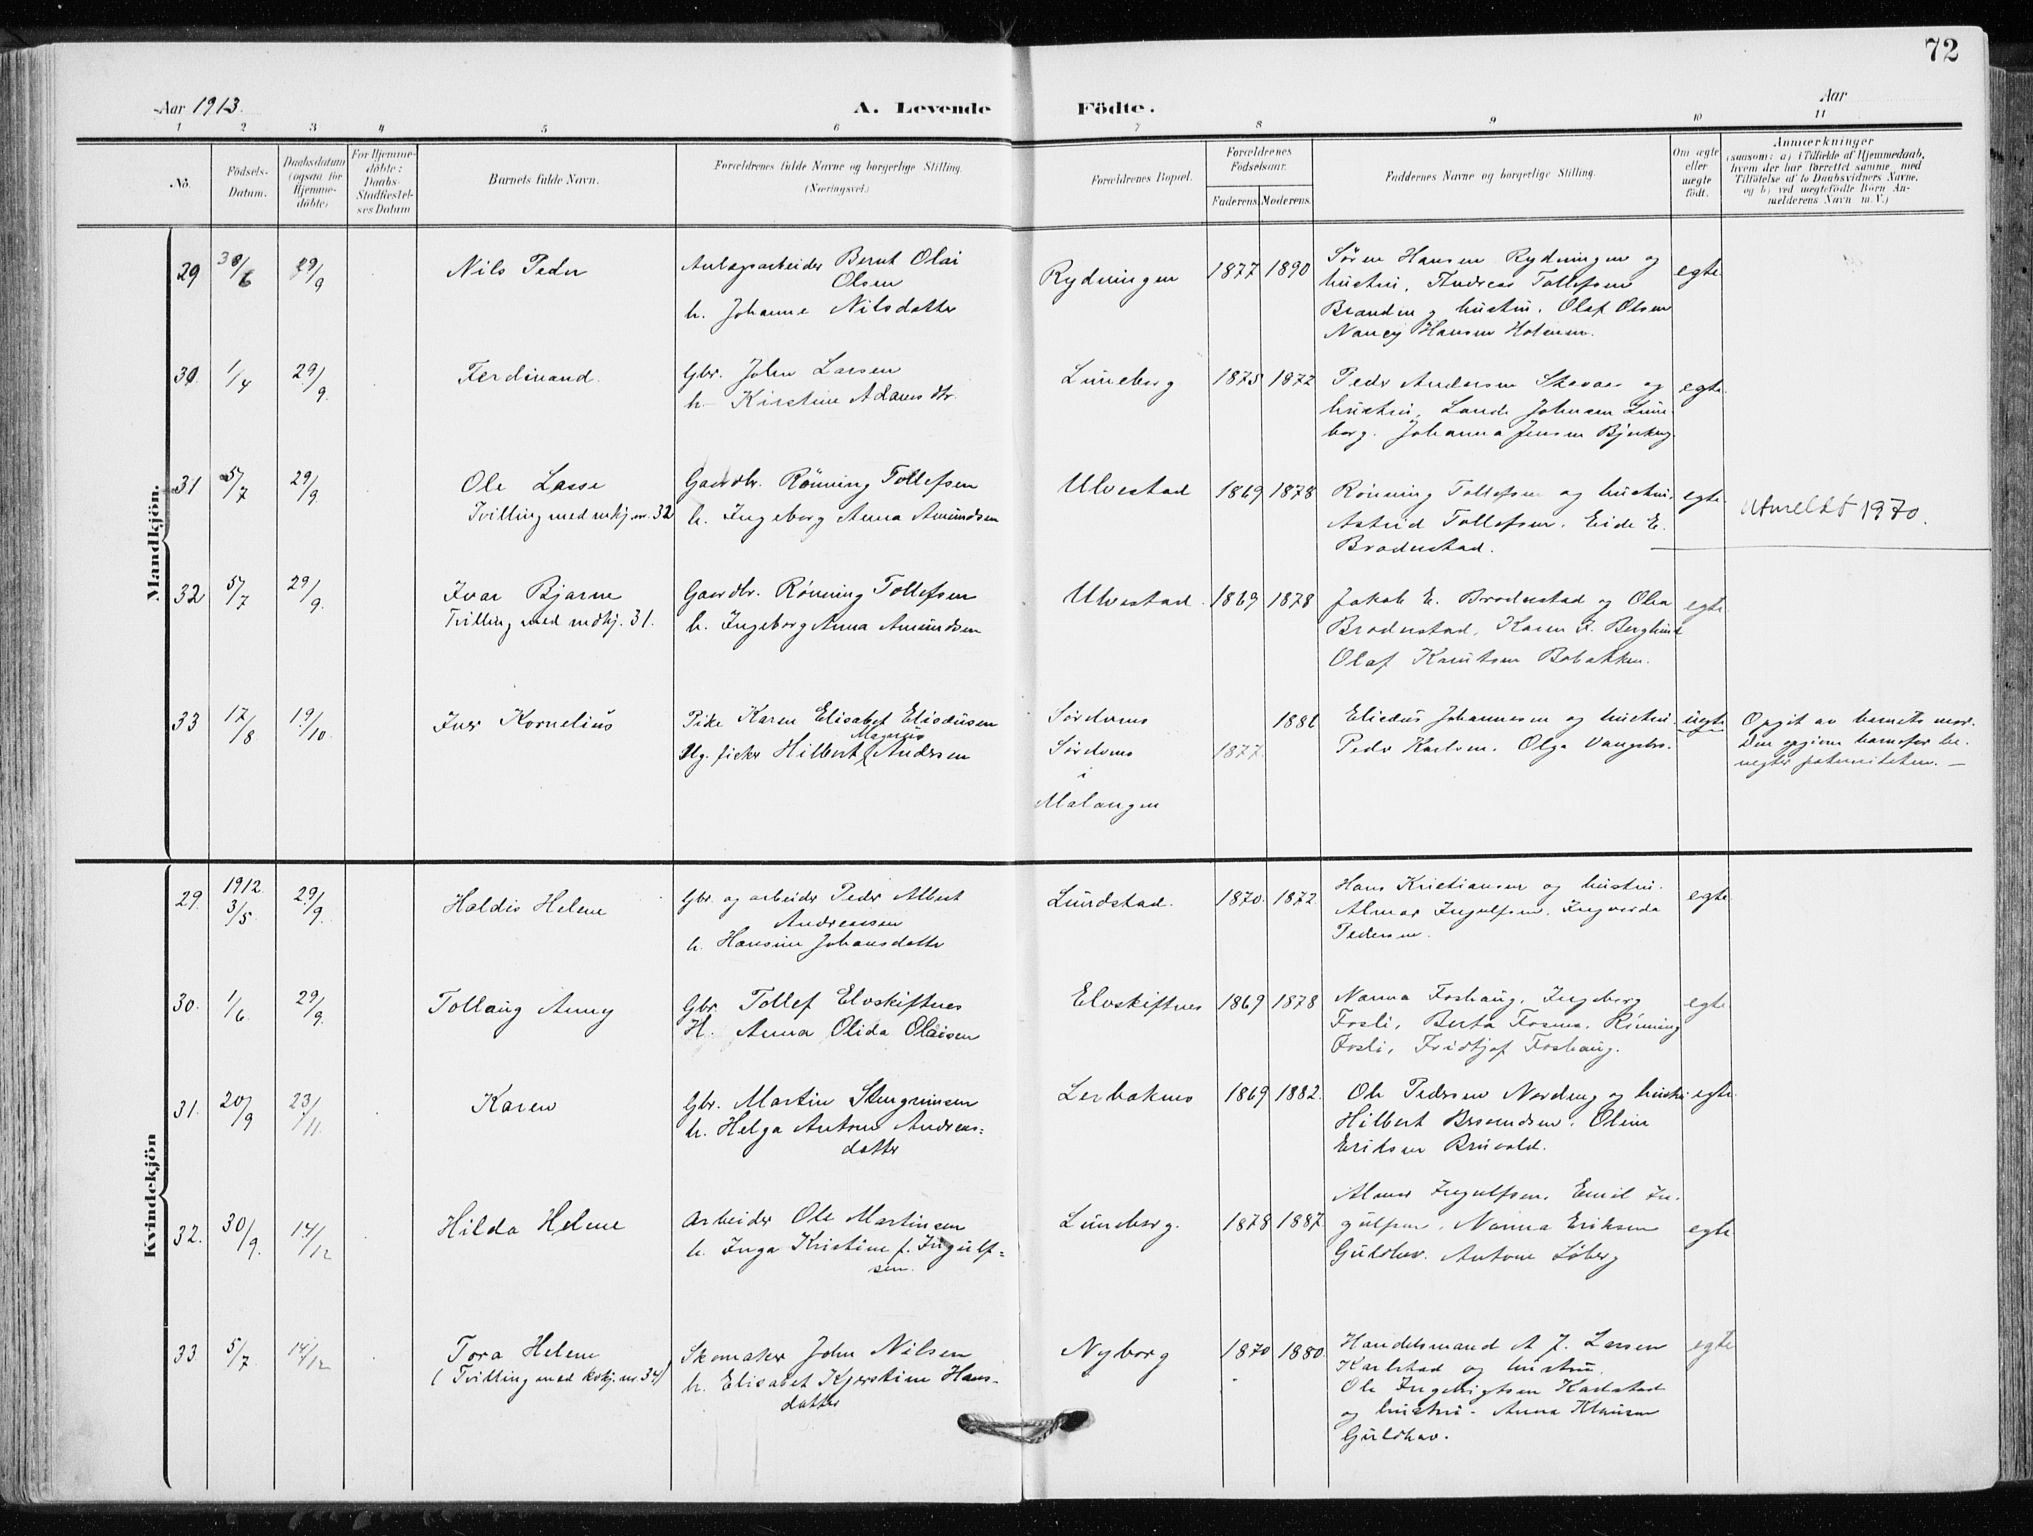 72
Aar 1913. A. Levende Födte. Aar
1 2 3 4 5 6 7 8 9 10 11
No.
Födsels-
Datum.
Daabsdatum
(ogsaa for
Hjemme-
døbte)
For Hjemme-
døbte:
Daabs-
Stadfæstel-
ses Datum
Barnets fulde Navn.
Forældrenes fulde Navne og borgerlige Stilling.
(Næringsvei.)
Forældrenes Bopæl.
Forældrenes
Födselsaar.
Faderens. Moderens.
Faddernes Navne og borgerlige Stilling.
Om ægte
eller
uægte
födt.
Anmærkninger
(saasom: a) i Tilfælde af Hjemmedaab,
hvem der har forrettet samme, med
Tilföielse af to Daabsvidners Navne,
og b) ved uægtefödte Börn An-
melderens Navn m. V.)
Mandkjön.
29 30/6 29/9 Nils Peder
Anlægsarbeider Bernt Olai
Olsen
h. Johanne Nilsdatter
Rydningen 1877 1890
Søren Hansen Rydningen og
hustru, Andreas Tollefsen
Branden og hustru. Olaf Olsen
Nancy Hansen
egte
30. 1/4 29/9. Ferdinand.
Gbr. John Larsen
h. Kirstine Adamsdtr.
Luneborg 1875 1872
Peder Andersen og
hustru, Johnsen Lune-
borg. Johanna Jensen
egte.
31 5/7 29/9 Ole Lasse
Tvilling med mkj. nr. 32
Gaardbr. Rønning Tollefsen
h. Ingeborg Anna Amundsen
Ulvestad 1869 1878
Rønning Tollefsen og hustru.
Astrid Tollefsen. Eide E.
Brodnstad.
egte
Utmeldt 1970.
32 5/7 29/9. Ivar Bjarne
Tvilling med mdkj. 31.
Gaardbr. Rønning Tollefsen
h. Ingeborg Anna Amundsen
Ulvestad. 1869 1878
Jakob E. Brodnstad og Olea
Brodnstad, Karen Berglund
Olaf Knutsen Bobakken.
egte
33 17/8. 19/10. Iver Kornelius
Pike Karen Elisabet Elisæusen
Magnus
Ulg. fisker Hilbert Andrsen
Sørdoms
Sørdoms
i
Malangen
1877. 1881
Elisæus Johannesen og hustru
Peder Karlsen. Olga Vangsbo.
uegte
Opgit av barnets mor.
Den opgivne barnefar be-
negter paterniteten. —
Kvindekjön
29. 1912 3/5 29/9. Haldis Helene
Gbr. og arbeider Peder Albert
Andreassen
h. Hansine Johansdatter
Lundstad. 1870. 1872.
Hans Kristiansen og hustru.
Almar Ingulfsen. Ingvarda
Pedersen.
egte
30. 1/6. 29/9. Tollaug Anny
Gbr. Tollef Elvskiftnes
H. Anna Olida Olaisen
Elvskiftnes 1869 1878
Nanna Foshaug, Ingeborg
Fosli, Berta Fosmo. Rønning
Fosli, Fridtjof Foshaug.
egte
31. 20/9 23/11. Karen
Gbr. Martin Stengrimsen
h. Helga Antone Andreas-
datter
Lerbaknes 1869 1882.
Ole Pedersen Nordeng og hustru
Hilbert Oline
Eriksen Bruvold.
egte.
32. 30/9. 14/12 Hilda Helene
Arbeider Ole Martinsen
h. Inga Kristine f. Ingulf-
sen.
Luneborg. 1878 1887.
Almar Ingulfsen. Emil In-
gulfsen. Nanna Eriksen
Guldhav. Antone Løberg
egte
33. 5/7. 14/12 Tora Helene
(Tvilling med kvkj. nr. 34)
Skomaker John Nilsen
h. Elisabet Kjerstine Hans-
datter
Nyborg 1870 1880.
Handelsmand A J. Larsen
Karlstad og hustru.
Ole Ingebrigtsen Karlstad
og hustru. Anna Klausen
Guldhav.
egte